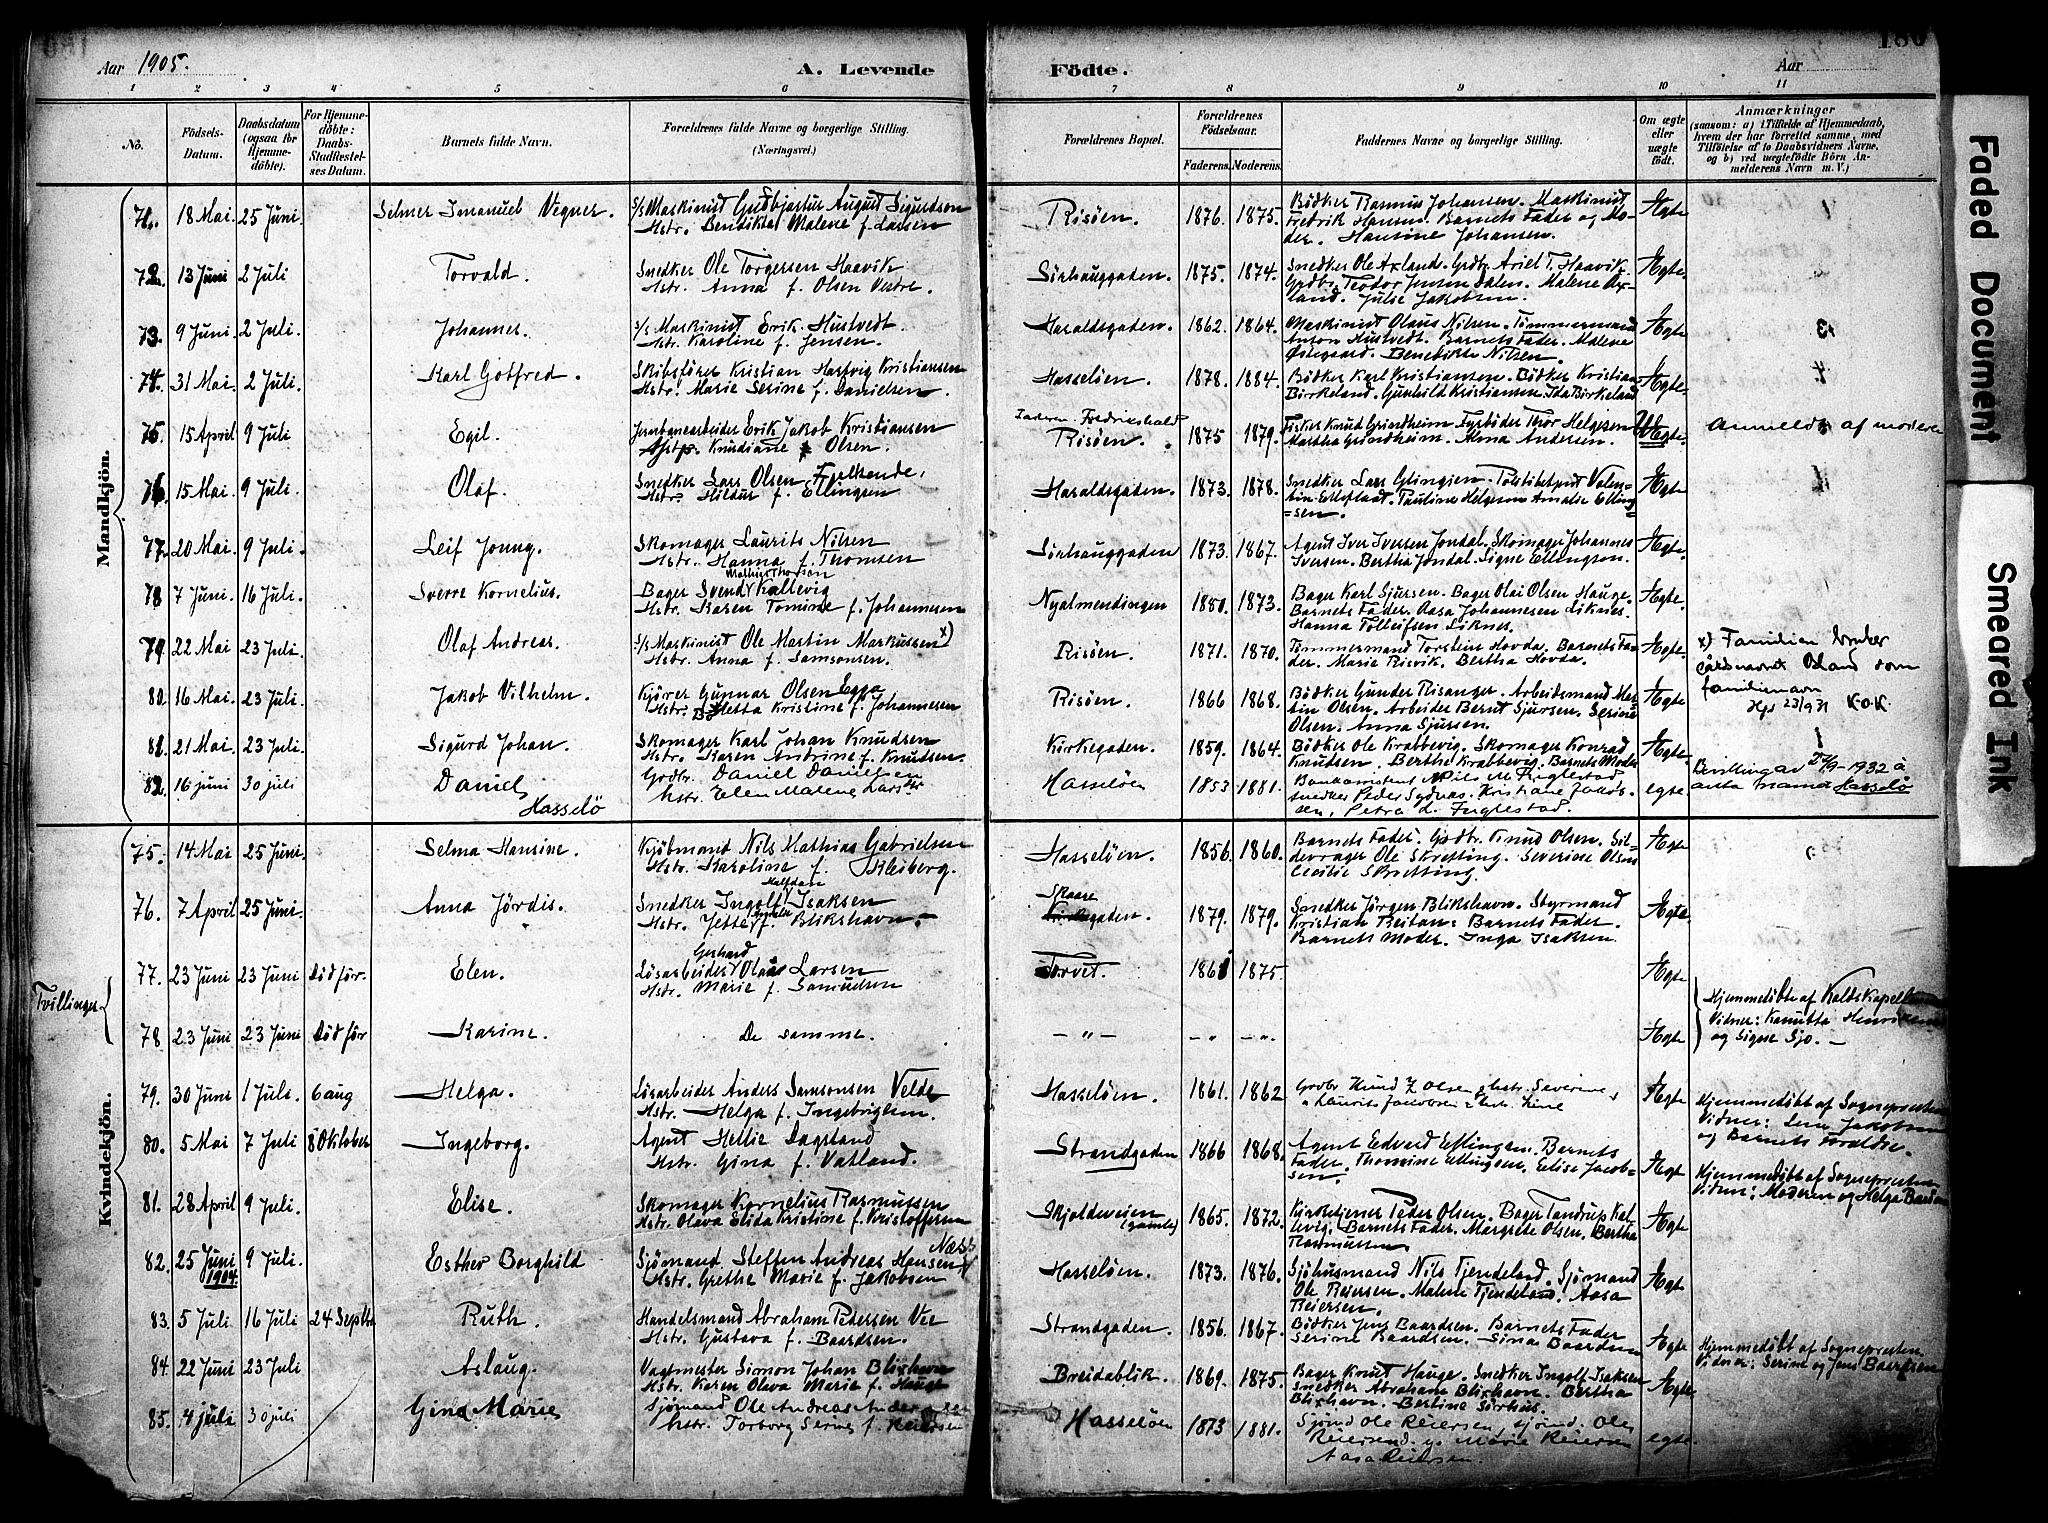 Aar 1905.
A. Levende
Födte.
Aar
180
1 2 3 4 5 6 7 8 9 10 11
No.
Födsels-Datum.
Daabsdatum (ogsaa for Hjemmedöbte).
For Hjemmedöbte: Daabs-Stadfestelses Datum.
Barnets fulde Navn.
Forældrenes fulde Navne og borgerlige Stilling. (Næringsvei.)
Forældrenes Bopæl.
Forældrenes Födselsaar.
Faderens. Moderens.
Faddernes Navne og borgerlige Stilling.
Om ægte eller uægte födt.
Anmærkninger
(saasom: a) i Tilfælde af Hjemmedaab, hvem der har forrettet samme, med Tilföielse af to Daabsvidners Navne, og b) ved uægtefödte Börn Anmelderens Navn m. V.)
Mandkjön.
71. 18 Mai. 25 Juni. Selmer Imanuel Vegner. s/s Maskinist Gudbjartur August Sigurdson
Hstr. Bendikte Malene f. Larsen
Risöen. 1876. 1875. Bödker Rasmus Johansen. Maskinist
Fredrik Hansen. Barnets Fader og Mo-
der. Hansine Johansen. Ægte.
72. 13 Juni 2 Juli Torvald. Snedker Ole Torgersen Haavik
Hstr. Anna f. Olsen Vestre.
Sörhauggaden. 1875. 1874. Snedker Ole Axland. Grdbr. Ariel T. Haavik.
Grdbr. Teodor Jensen Dalen. Malene Ax-
land. Julie Jakobsen. Ægte.
73. 9 Juni 2 Juli. Johannes. s/s Maskinist Erik Hustvedt.
Hstr. Karoline f. Jensen.
Haraldsgaden. 1862. 1864. Maskinist Olaus Nilsen. Tömmermand
Anton Hustvedt. Barnets Fader. Malene
Östegaard. Benedikte Nilsen. Ægte
74. 31 Mai. 2 Juli. Karl Gotfred. Skibsförer Kristian Hartvig Kristiansen
Hstr. Marie Serine f. Danielsen.
Hasselöen. 1878. 1884. Bödker Karl Kristiansen. Bödker Kristian
Birkeland. Gunhild Kristiansen. Ida Birkeland Ægte.
75. 15 April 9 Juli Egil. Jernbanearbeider Erik Jakob Kristiansen
Knudiane Olsen.
Faderen Fredrikshald
Risöen. 1875 1879. Fisker Knud Grindheim. Fyrböder Tor Helgesen
Martha Grindheim. Anna Andersen. Uægte. Anmeldt af moderen
76. 15 Mai. 9 Juli Olaf. Snedker Lars Olsen Fjelkende,
Hstr. Hildur f. Ellingsen
Haraldsgaden. 1873. 1878. Snedker Lars Ellingsen. Politibetjent Valen-
tin Eltefstad. Pauline Helgesen Amalie Elling=
=sen. Ægte
77. 20 Mai. 9 Juli. Leif Jonny. Skomager Laurits Nilsen
Hstr. Hanna f. Thomsen
Sörhauggaden 1873. 1867. Agent Iver Iversen Jondal. Skomager Johannes
Iversen. Bertha Jondal. Signe Ellingsen. Ægte.
78. 7 Juni. 16 Juli. Sverre Kornelius. Mathias Thorsen
Bager Svend Kallevig
Hstr. Karen Tomine f. Johannesen
Nyalmendingen 1850. 1873. Bager Karl Sjursen. Bager Olai Olsen Hauge.
Barnets Fader. Aasa Johannesen Liknes.
Hanna Tolleifsen Liknes. Ægte.
79. 22 Mai 23 Juli. Olaf Andreas. s/s Maskinist Ole Martin Markussen x)
Hstr. Anna f. Samsonsen.
Risöen. 1871. 1870. Tömmermand Torstein Hovda. Barnets Fa-
der. Marie Risvik. Bertha Hovda. Ægte. x) Familien bruker
gårdsnavnet Osland som
familienavn
Hgs 23/9 31 K.O.K.
80. 16 Mai. 23 Juli. Jakob Vilhelm. Kjörer Gunnar Olsen Egge
Hstr. Jetta Kristine f. Johannesen
Risöen. 1866 1868. Bödker Gunder Risanger. Arbeidsmand Mar-
tin Olsen. Arbeider Bernt Sjursen. Serine
Olsen. Anna Sjursen. Ægte
81. 21 Mai. 23 Juli. Sigurd Johan. Skomager Karl Johan Knudsen
Hstr. Karen Andrine f. Knudsen.
Kirkegaden. 1859. 1864. Bödker Ole Krabbevig. Skomager Konrad
Knudsen. Berthe Krabbevig. Barnets Moder Ægte.
82. 16 juni 30 juli Daniel Hasselö Grdbr. Daniel Danielsen
hstr. Elen Malene
Hasselöen 1853 1881. Nils M.
snedker Peder
Petra egte Bevilling av 2/9-1932 å
anta navnet Hasselö
Kvindekjön.
75. 14 Mai 25 Juni. Selma Hansine. Kjöbmand Nils Mathias Gabrielsen
Hstr. Karoline f. Bleiberg.
Hasselöen. 1856. 1860. Barnets Fader. Grdbr. Knud Olsen. Sil-
devrager Ole Skretting. Severine Olsen
Cecilie Skretting. Ægte
76. 7 April 25 Juni. Anna Jördis. Halfdan
Snedker Ingolf Isaksen
Hstr. Jette f. Blikshavn.
Skaare
gaden. 1879. 1879. Snedker Jörgen Blikshavn. Styrmand
Kristian Reitan. Barnets Fader.
Barnets Moder. Inga Isaksen. Ægte.
Tvillinger
77. 23 Juni 23 Juni Död för. Elen. Gerhard
Lösarbeider Olaus Larsen
Hstr. Marie f. Samuelsen
Torvet. 1861 1875. Ægte
78. 23 Juni 23 Juni Död för Karine. De samme. —"— —"— —"— Ægte
Hjemmedöbte af Kald. Kapellan
Vidner: Kanutta Henriksen
og Signe Sjo. —
79. 30 Juni 1 Juli. 6 aug Helga. Lösarbeider Anders Samsonsen Velde
Hstr. Helga f. Ingebrigtsen.
Hasselöen. 1861. 1862 Grdbr Knud Z Olsen & hstr. Severine,
" Laurits Jacobsen & hstr. Line Ægte Hjemmedöbt af Sognepresten
Vidner: Line Jakobsen
og Barnets Foraldre.
80. 5 Mai 7 Juli 8 Oktober Ingeborg. Agent Hellie Dagsland
Hstr. Gina f. Vatland.
Strandgaden 1866 1868. Agent Edvard Ellingsen. Barnets
Fader. Thomine Ellingsen. Elise Jacob-
sen. Ægte Hjemmedöbt af Sognepresten
Vidner: Moderen og Helga
81. 28 April 9 Juli. Elise. Skomager Kornelius Rasmussen
Hstr. Olava Elida Kristine f. Kristoffersen
Skjoldeveien (gamle) 1865. 1872. Kirketjener Peder Olsen. Bager Tandrup Kal-
levig. Barnets Fader. Margrete Olsen. Bertha
Rasmussen. Ægte
82. 25 Juni 1904. 9 Juli. Esther Borghild Sjömand Steffen Andreas Hansen Næss
Hstr. Grethe Marie f. Jakobsen
Hasselöen. 1873. 1876. Sjöhusmand Nils Tjendeland. Sjömand
Ole Reiersen. Malene Tjendeland. Aasa
Reiersen. Ægte
83. 5 Juli 16 Juli 24 Septbr Ruth. Handelsmand Abraham Pedersen Vee
Hstr. Gustava f. Baardsen.
Strandgaden. 1856. 1867. Bödker Jens Baardsen. Barnets Fader
Serine Baardsen. Sina Baardsen Ægte Hjemmedöbt af Sognepresten
Vidner: Serine og Jens Baardsen
84. 22 Juni 23 Juli Aslaug. Vagtmester Simon Johan Blixhavn
Hstr. Karen Olava Marie f. Hauge
Breidablik. 1869. 1875. Bager Knut Hauge. Snedker Ingolf Isaksen
Snedker Abraham Blixhavn. Bertha
Blixhavn. Bertine Sörhus. Ægte
85. 4 juli 30 juli Gina Marie Sjömand Ole Andreas
hstr. Torborg Serine f. Reiersen
Hasselöen 1873 1881. Sjömd Ole Reiersen, sjömd. Ole
Reiersen d. y. Marie Reiersen
Aasa Reiersen. egte
Faded Document
Smeared Ink